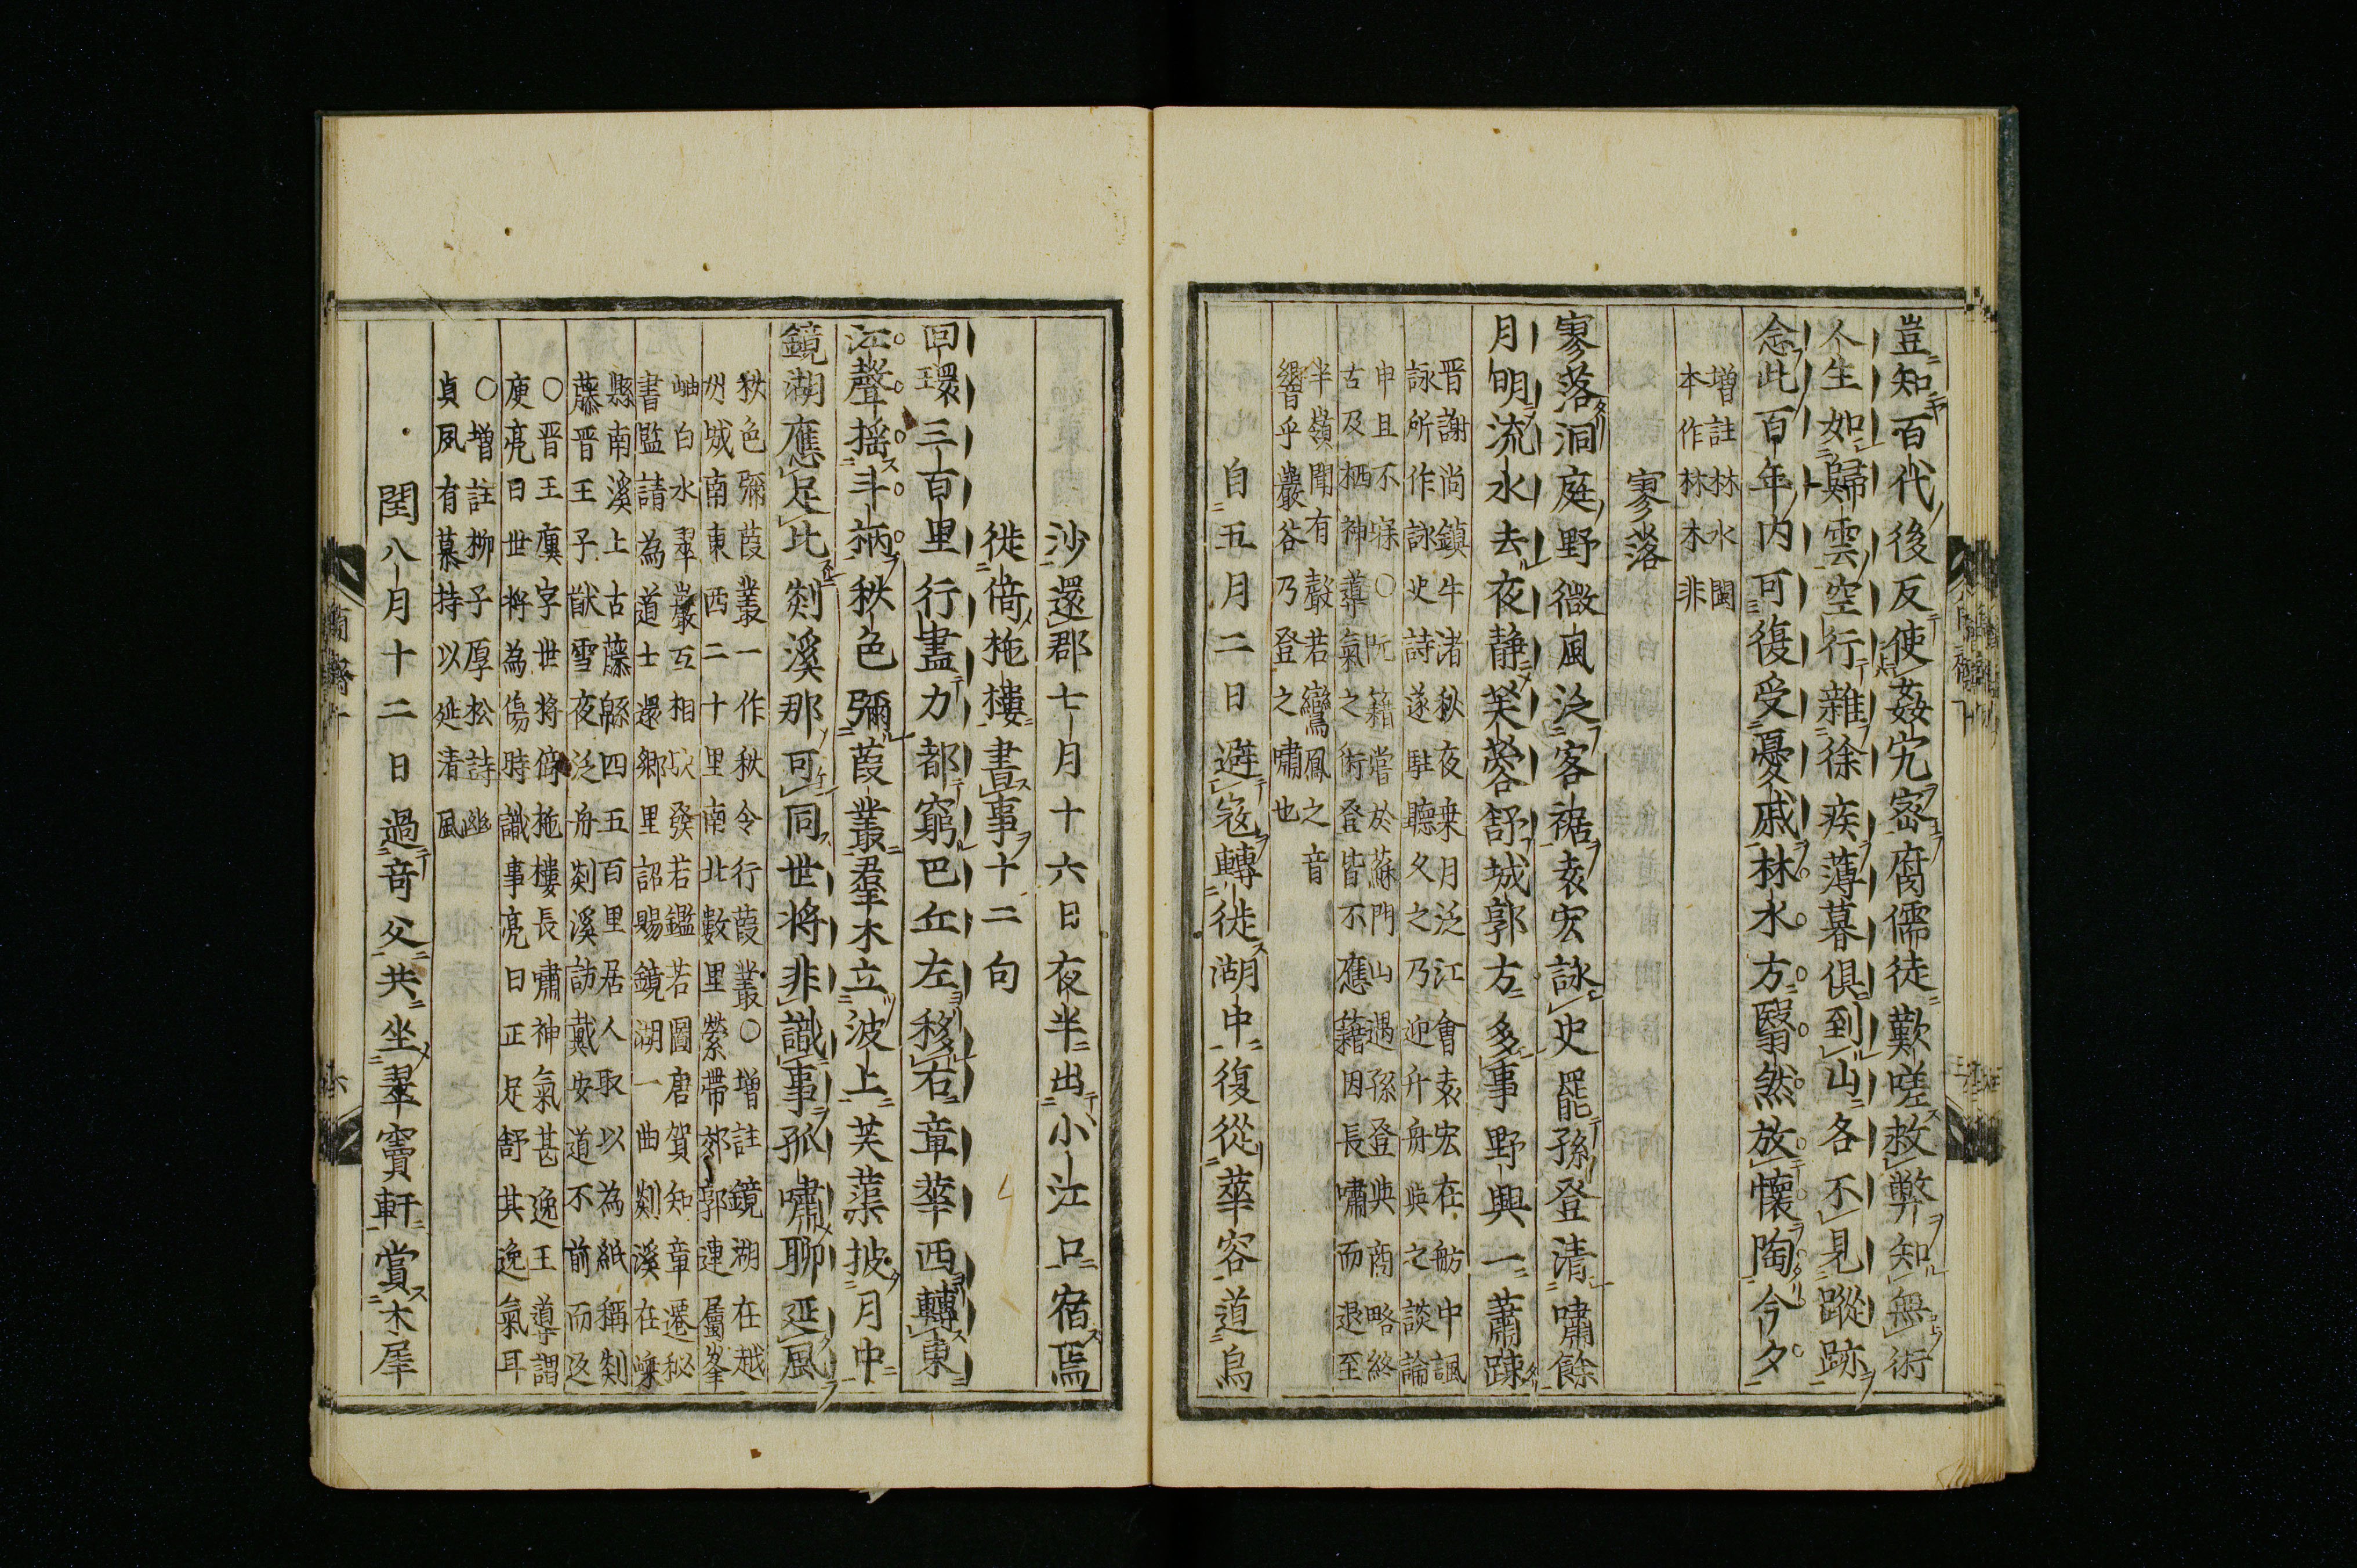 豈知百代後反使姦宄密腐儒徒歎嗟救弊知無術
人生如歸雲空行雜徐疾薄暮俱到山各不見蹤跡
念此百年内可復受憂戚林水方翳然放懷陶今夕
增註林水閩
本作林木非
寥落
寥落洞庭野微風泛客裾袁宏詠史罷孫登清嘯餘
月明流水去夜静芙蓉舒城郭方多事野興一蕭踈
晋謝尚鎮牛渚秋夜乗月泛江會袁宏在舫中諷
詠所作詠史詩遂駐聽久之乃迎升舟與之談論
申旦不寐○阮籍嘗於蘇門山遇孫登與商略終
古及栖神導氣之術登皆不應籍因長嘯而退至
半嶺聞有聲若鸞鳳之音
響乎巖谷乃登之嘯也
自五月二日避寇轉徙湖中復從華容道烏
沙還郡七月十六日夜半出小江口宿焉
徙倚柂樓書事十二句
回環三百里行盡力都窮巴丘左移右章華西轉東
江聲摇斗柄秋色彌葭叢羣木立波上芙蕖披月中
鏡湖應足此剡溪那可同世將非識事孤嘯聊延風
秋色彌葭叢一作秋令行葭叢○增註鏡湖在越
州城南東西二十里南北數里縈帶郊郭連屬峯
岫白水翠巖互相映發若鑑若圖唐賀知章遷秘
書監請為道士還鄉里詔賜鏡湖一曲剡溪在嵊
縣南溪上古藤緜四五百里居人取以為紙稱剡
藤晋王子猷雪夜泛舟剡溪訪戴安道不前而返
○晋王廙字世將倚柂樓長嘯神氣甚逸王導謂
庾亮曰世將為傷時識事亮曰正足舒其逸氣耳
○增註柳子厚松詩幽
貞夙有慕持以延清風
閏八月十二日過奇父共坐翠竇軒賞木犀
簡齋十
六